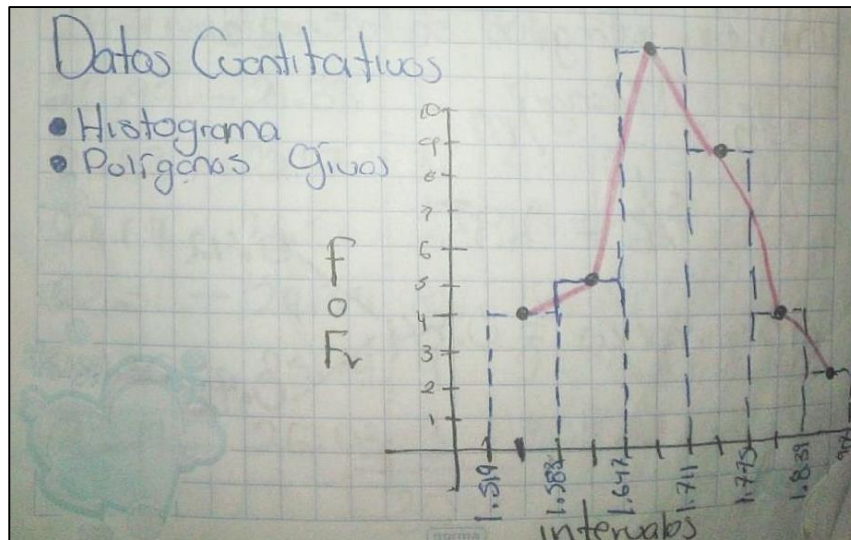 Datos Cuantitativos
• Histograma
• Polígonos Ojivas
10
9
8
7
6
5
4
3
2
1
F
o
Fr
1.519
1.583
1.647
1.711
1.775
1.839
intervalos
norma